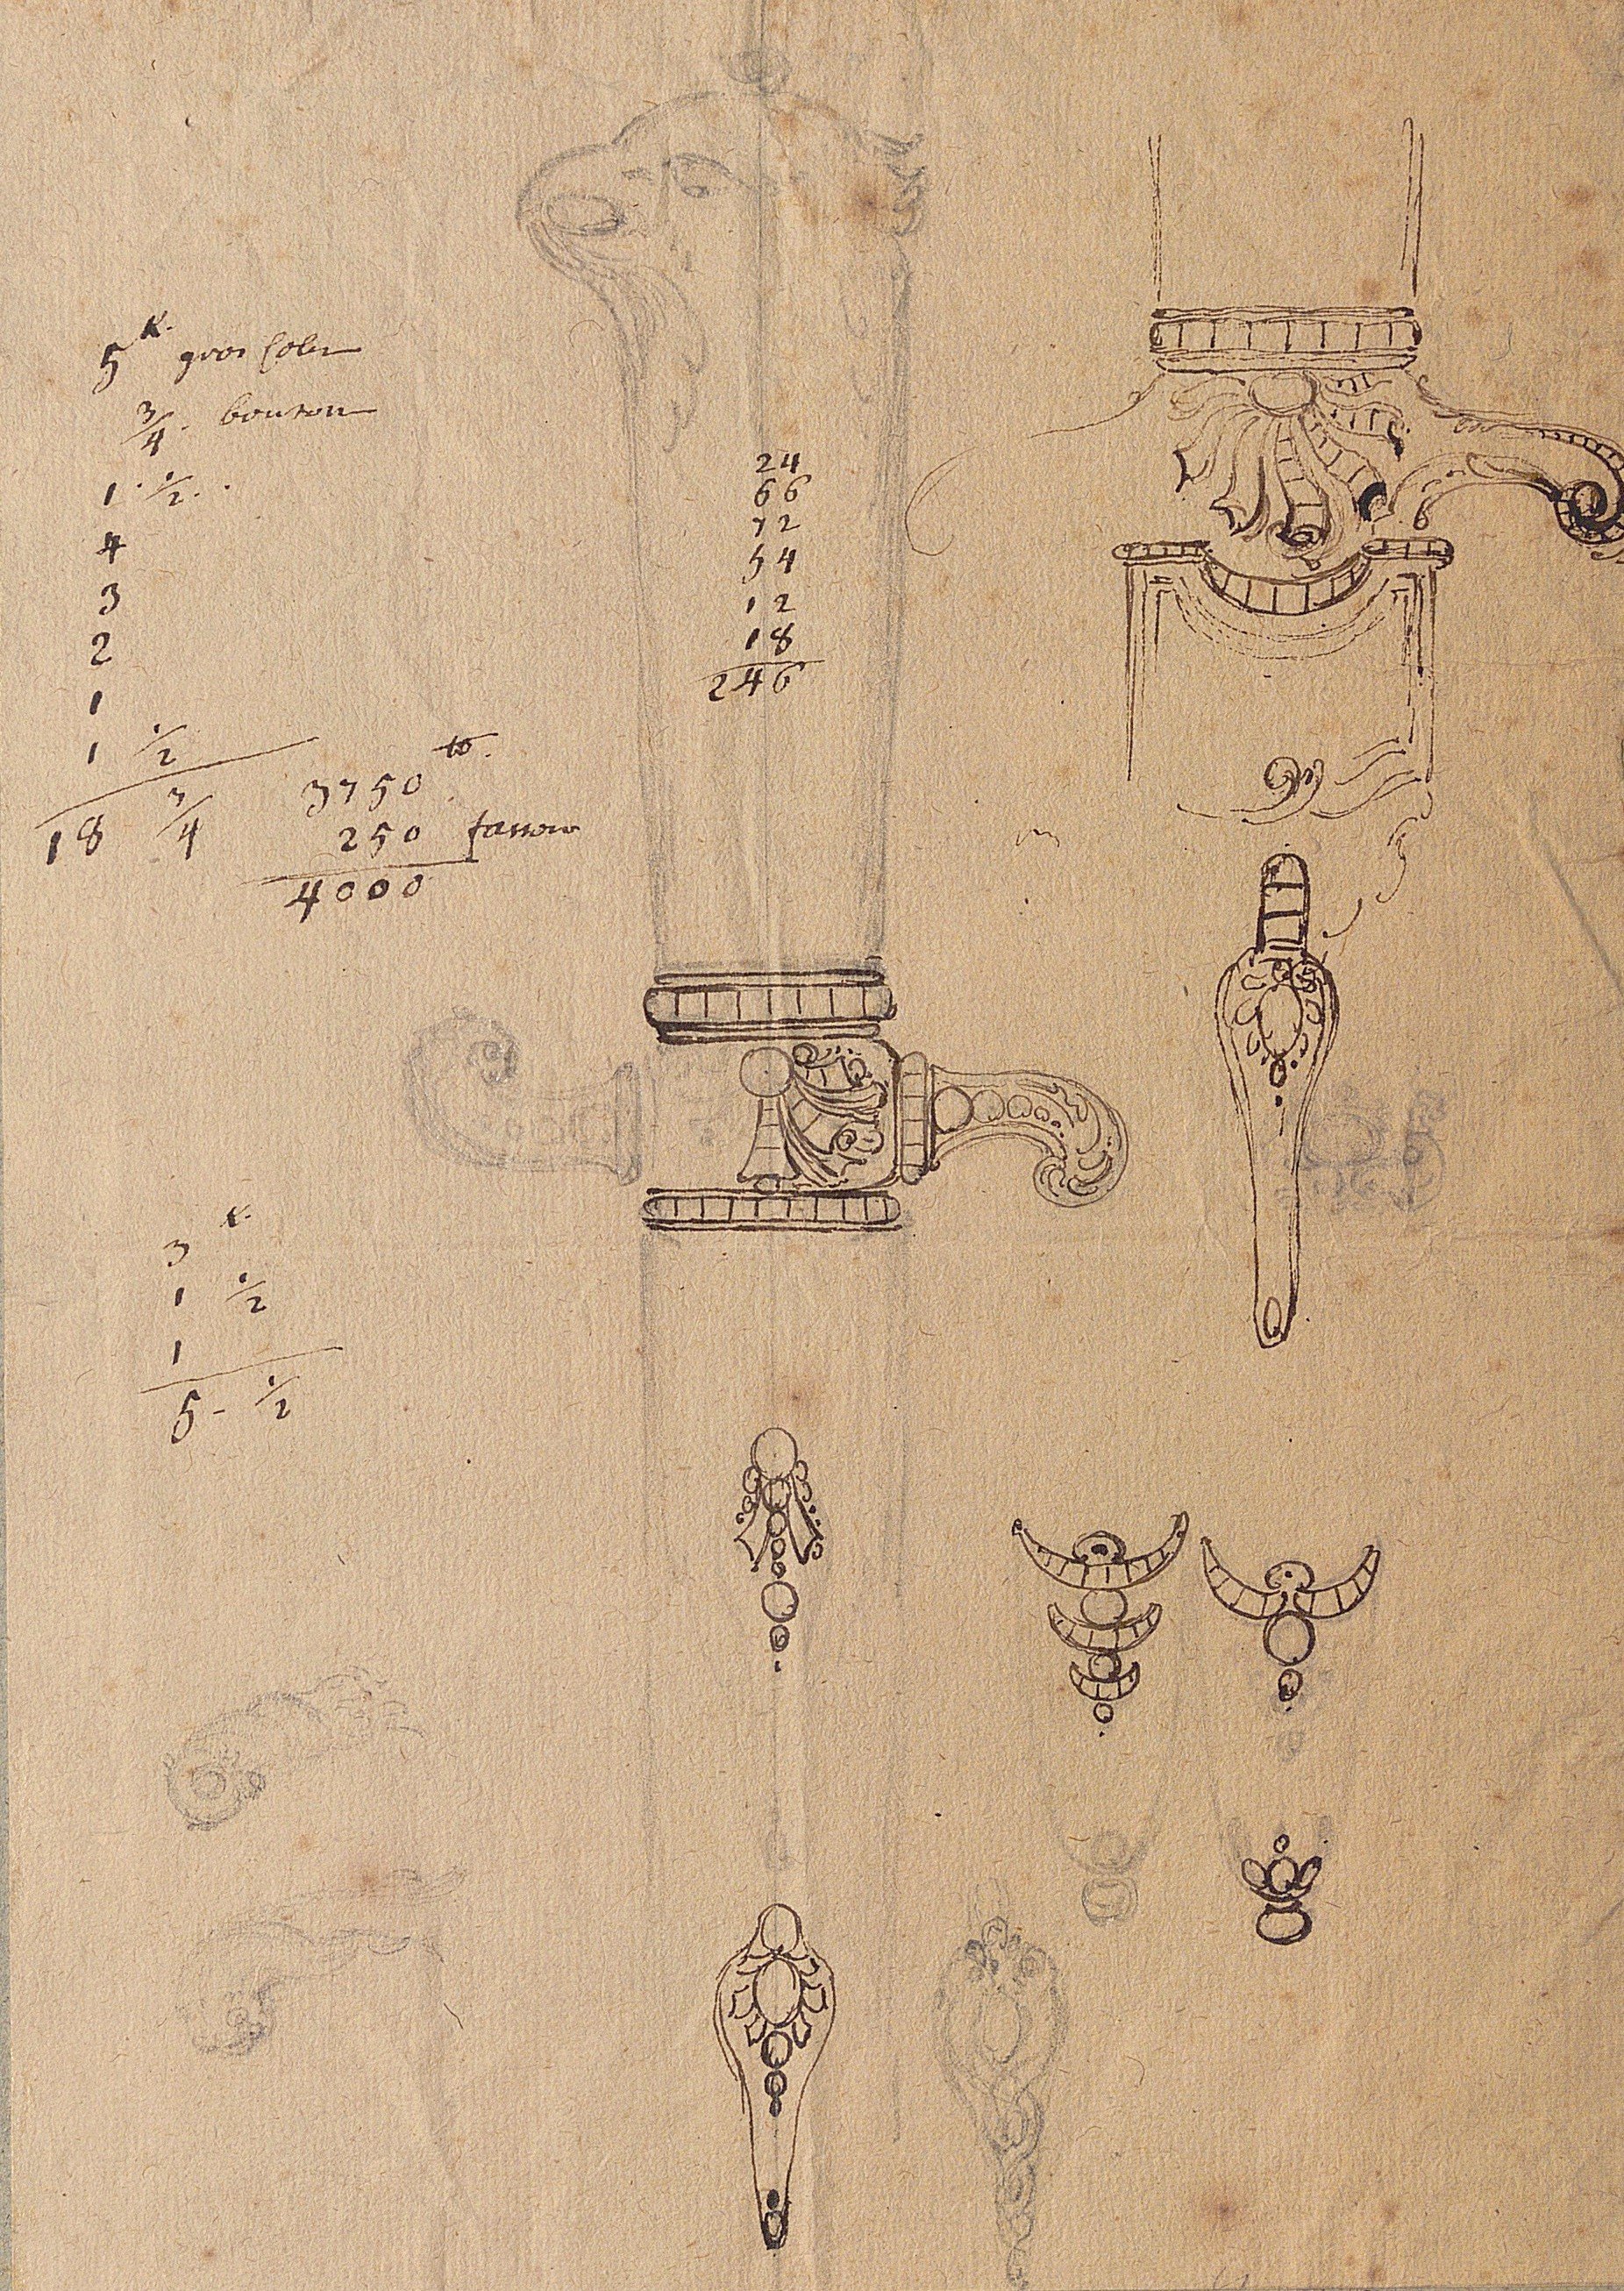 5 K. gros colier
3/4. bouton
1. 1/2.
4
3
2
1
1 1/2
18 3/4
3750 ₶.
250 fasson
4000
24
66
72
54
12
18
246
3 K.
1 1/2
1
5 - 1/2